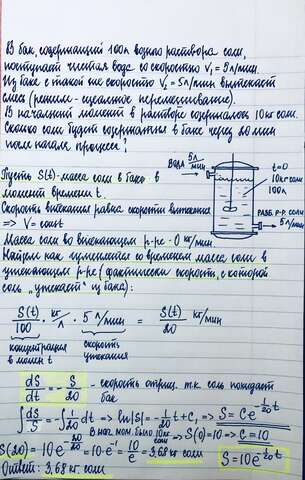 В бак, содержащий 100л водного раствора соли,
поступает чистая вода со скоростью V₁ = 5л/мин.
Из бака с такой же скоростью V₂ = 5л/мин вытекает
смесь (режим - идеальное перемешивание).
В начальный момент в растворе содержалось 10кг соли.
Сколько соли будет содержаться в баке через 20 мин
после начала процесса?
Пусть S(t) - масса соли в баке в
момент времени t.
Скорость втекания равна скорости вытекания
=> V = const
ВОДА 5 л/мин
t=0
10кг соли
100л
РАЗБ. Р-Р. СОЛИ
5 л/мин
Масса соли во втекающем р-ре - 0 кг/мин.
Найдем как изменяется со временем масса соли в
утекающем р-ре (фактически скорость, с которой
соль "утекает" из бака):
S(t)/100 · кг/л · 5 л/мин = S(t)/20 кг/мин
концентрация в момент t
скорость утекания
dS/dt = - S/20 - скорость отриц. т.к. соль покидает бак
∫dS/S = -∫1/20 dt => ln|S| = -1/20 t + C₁ => S = C e^(-1/20 t)
В нач. мом. было 10кг => S(0)=10 => C=10
S(20) = 10e^(-20/20) = 10·e⁻¹ = 10/e = 3,68 кг соли
S = 10e^(-1/20 t)
Ответ: 3,68 кг соли